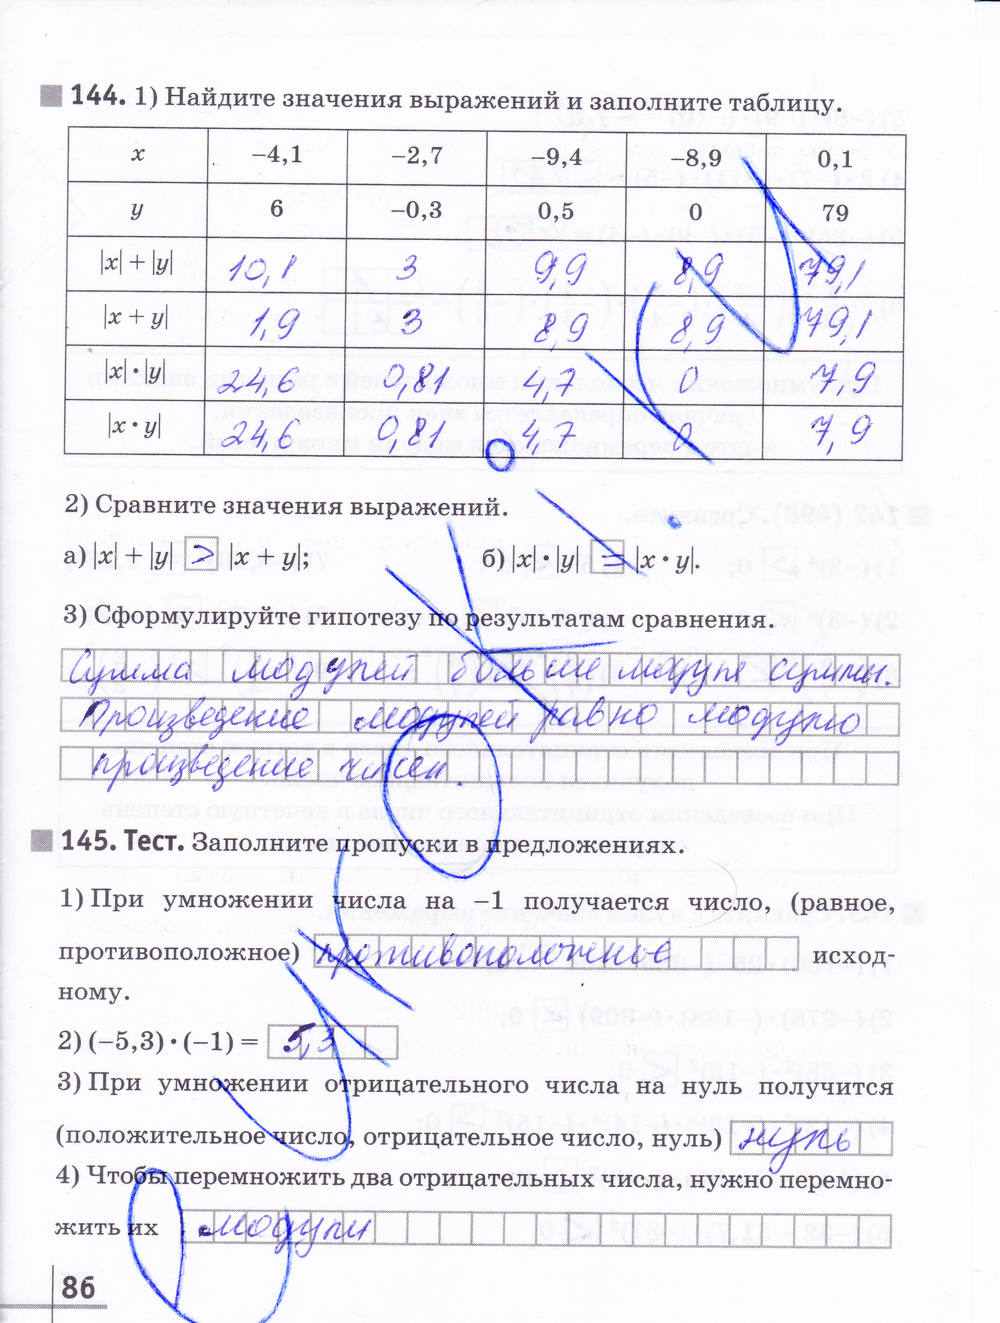 144. 1) Найдите значения выражений и заполните таблицу.
x −4,1 −2,7 −9,4 −8,9 0,1
y 6 −0,3 0,5 0 79
|x| + |y| 10,1 3 9,9 8,9 79,1
|x + y| 1,9 3 8,9 8,9 79,1
|x| · |y| 24,6 0,81 4,7 0 7,9
|x · y| 24,6 0,81 4,7 0 7,9
2) Сравните значения выражений.
а) |x| + |y| > |x + y|; б) |x| · |y| = |x · y|.
3) Сформулируйте гипотезу по результатам сравнения.
Сумма модулей больше модуля суммы.
Произведение модулей равно модулю
произведение чисел
145. Тест. Заполните пропуски в предложениях.
1) При умножении числа на −1 получается число, (равное,
противоположное) противоположное исход-
ному.
2) (−5,3) · (−1) = 5,3
3) При умножении отрицательного числа на нуль получится
(положительное число, отрицательное число, нуль) нуль
4) Чтобы перемножить два отрицательных числа, нужно перемно-
жить их модули
86